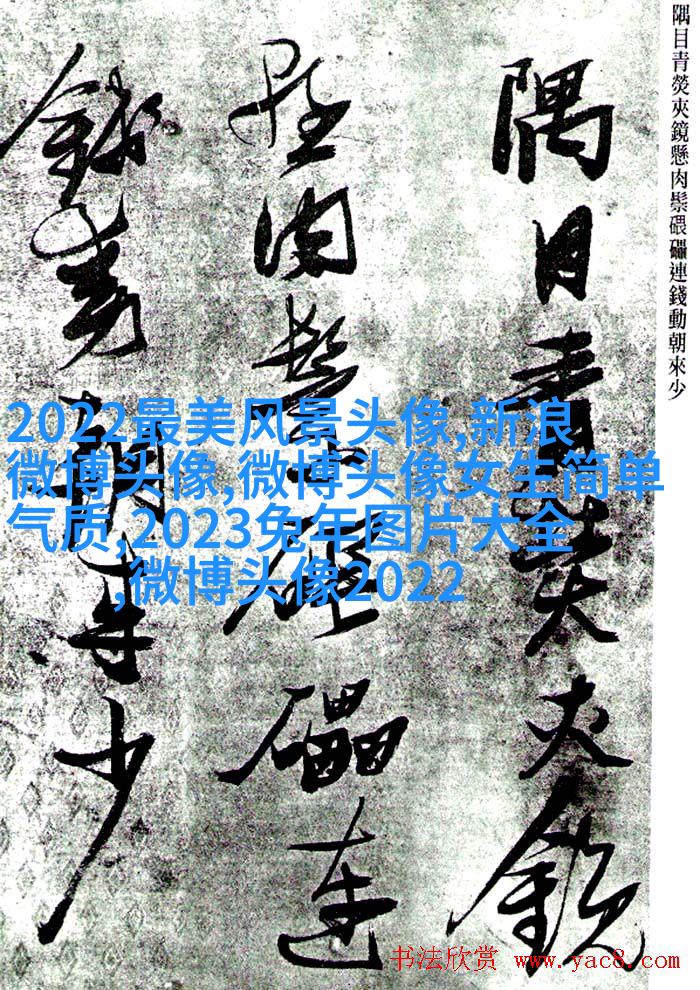 隅目青熒夾鏡懸肉鬃碨礧連錢動朝來少
隅目青熒夾鏡
懸肉鬃碨礧連
錢動朝來少
2022最美风景头像,新浪
微博头像,微博头像女生简单
气质,2023兔年图片大全
,微博头像2022
书法欣赏 www.yac8.com